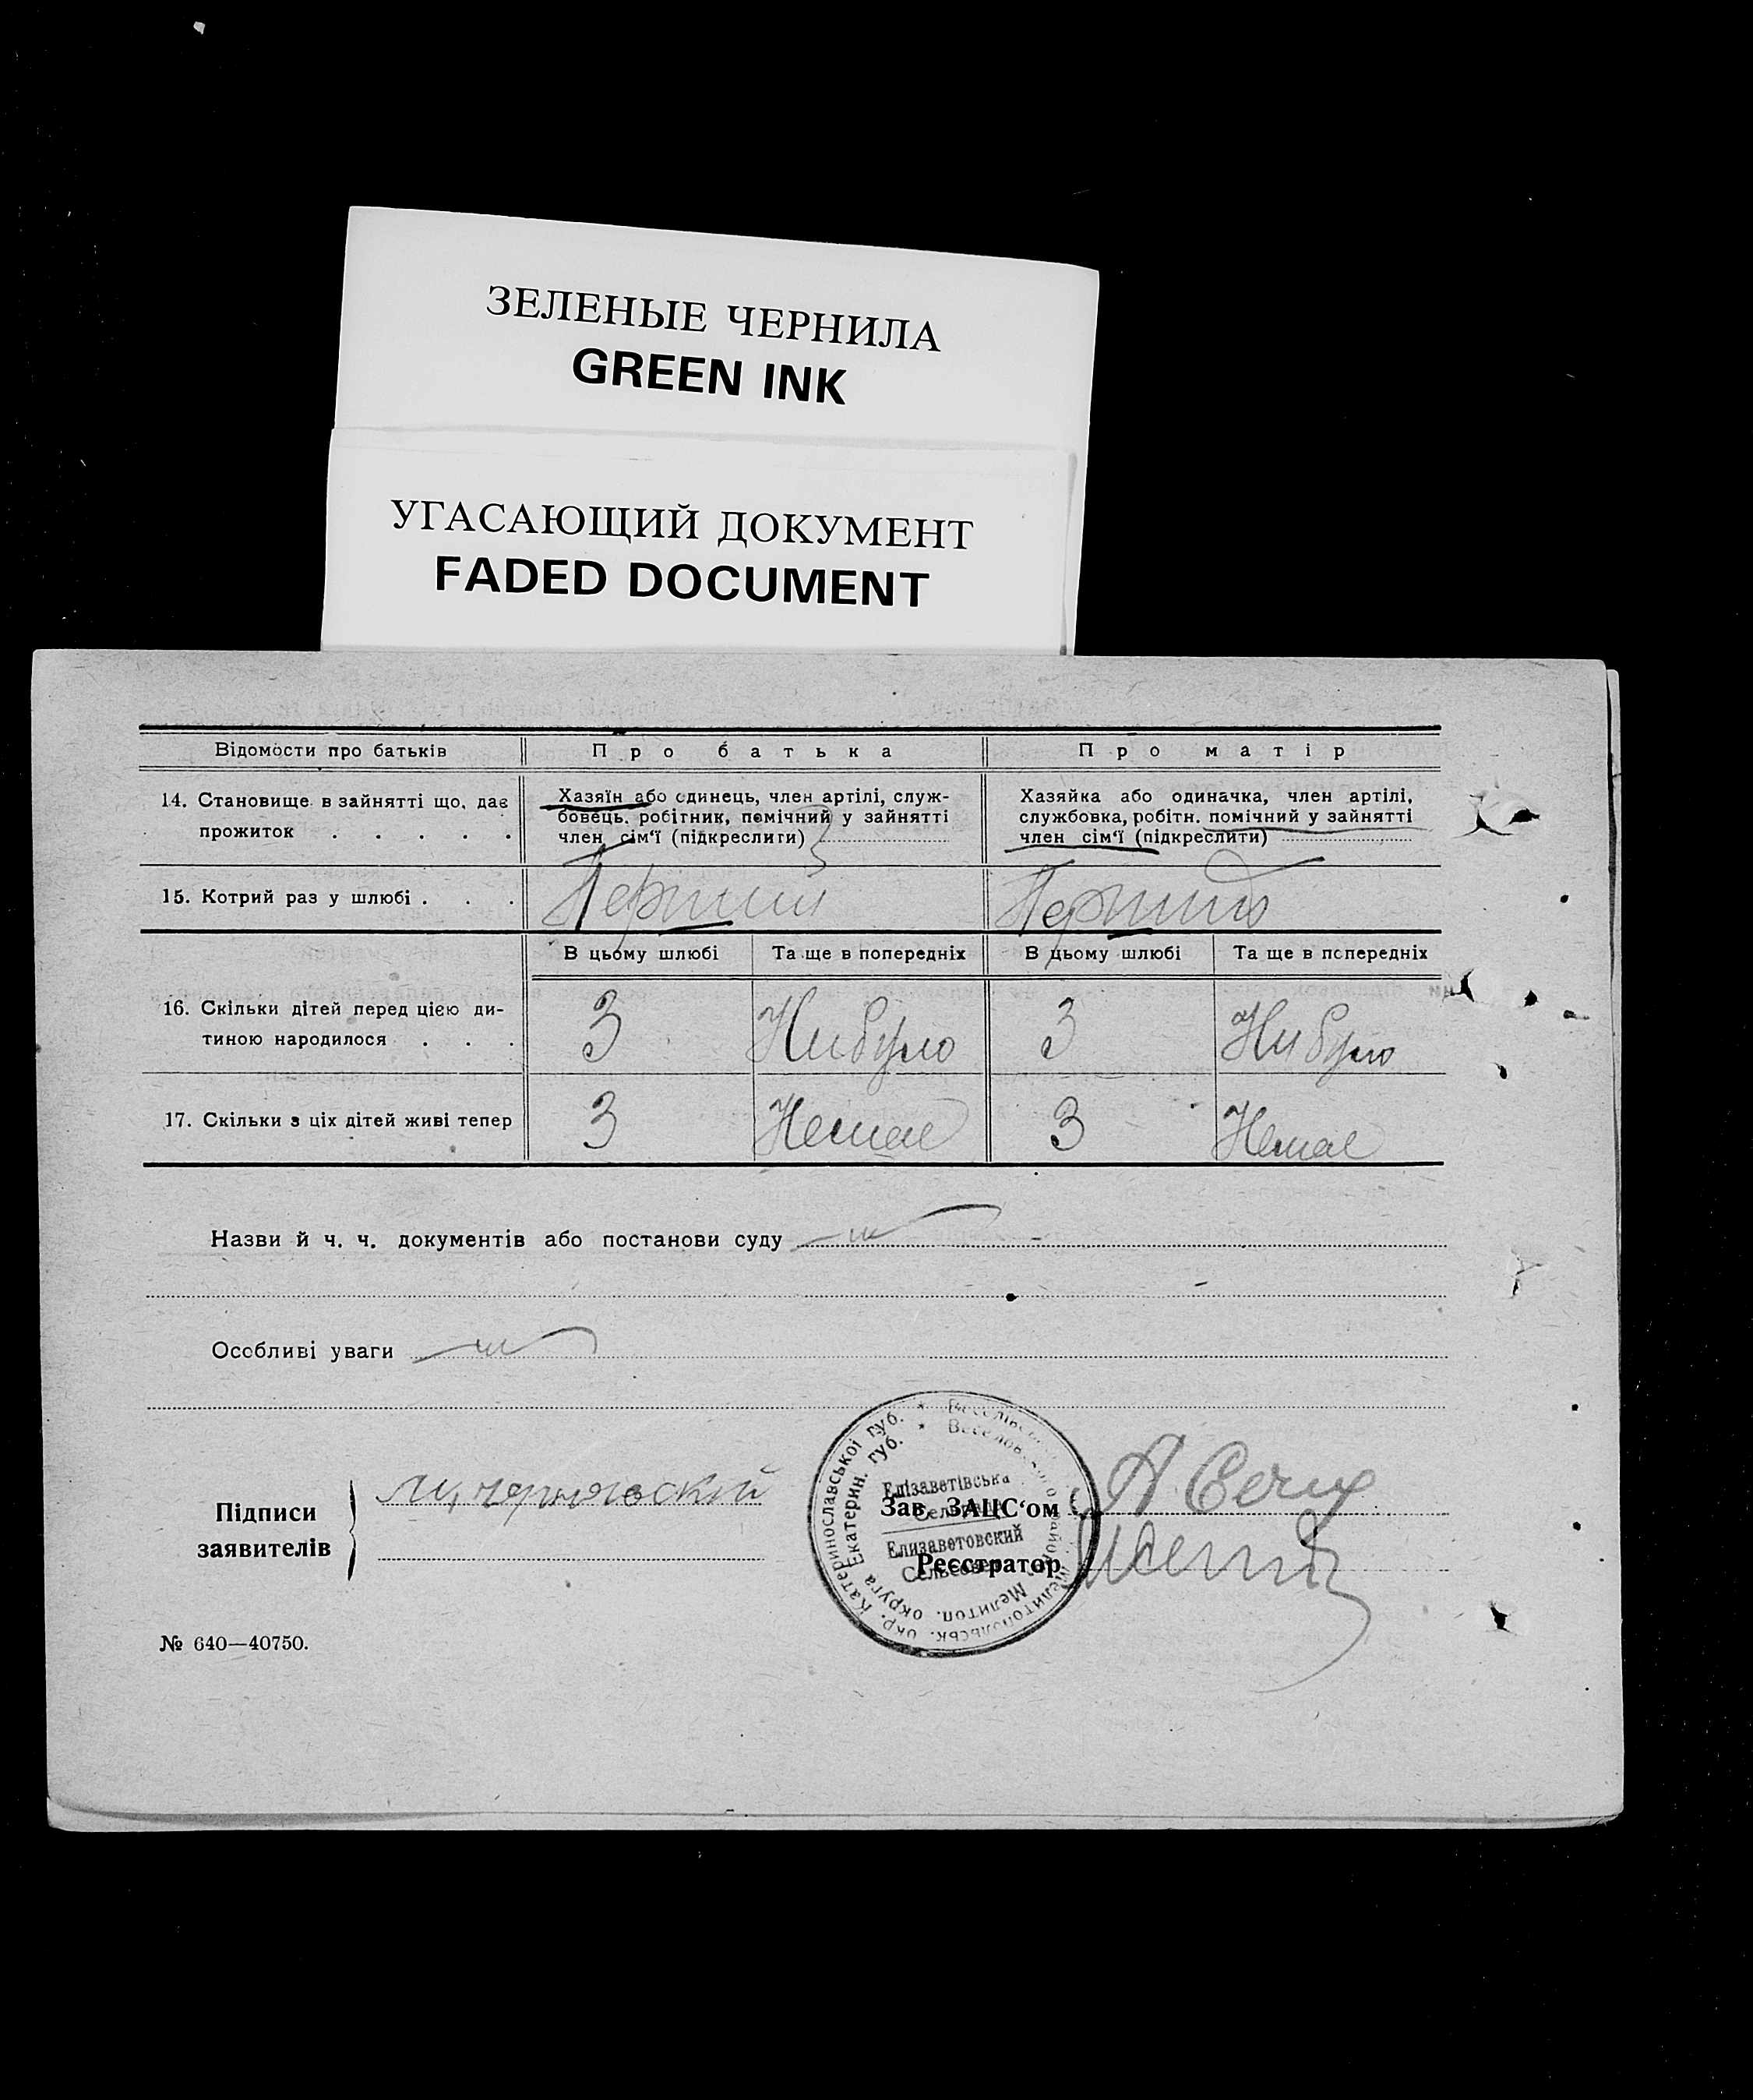 ЗЕЛЕНЫЕ ЧЕРНИЛА
GREEN INK
УГАСАЮЩИЙ ДОКУМЕНТ
FADED DOCUMENT
Відомости про батьків Про батька Про матір
14. Становище в зайнятті що, дає прожиток . . . . .
Хазяїн або одинець, член артілі, служ-
бовець, робітник, помічний у зайнятті
член сім‘ї (підкреслити)
Хазяйка або одиначка, член артілі,
службовка, робітн. помічний у зайнятті
член сім‘ї (підкреслити)
15. Котрий раз у шлюбі . . . Перший
В цьому шлюбі Та ще в попередніх В цьому шлюбі Та ще в попередніх
16. Скільки дітей перед цією ди-
тиною народилося . . . 3 Нибуло 3 Нибуло
17. Скільки з ціх дітей живі тепер 3 Немае 3 Немае
Назви й ч. ч. документів або постанови суду
Особливі уваги
Підписи
заявителів
Зав. ЗАЦС‘ом
Реєстратор
Єлізаветівська
Сельрада
Елизаветовский
Сельсовет
окр. Катеринославської губ.
Мелитоп. округа Екатерин. губ.
№ 640—40750.